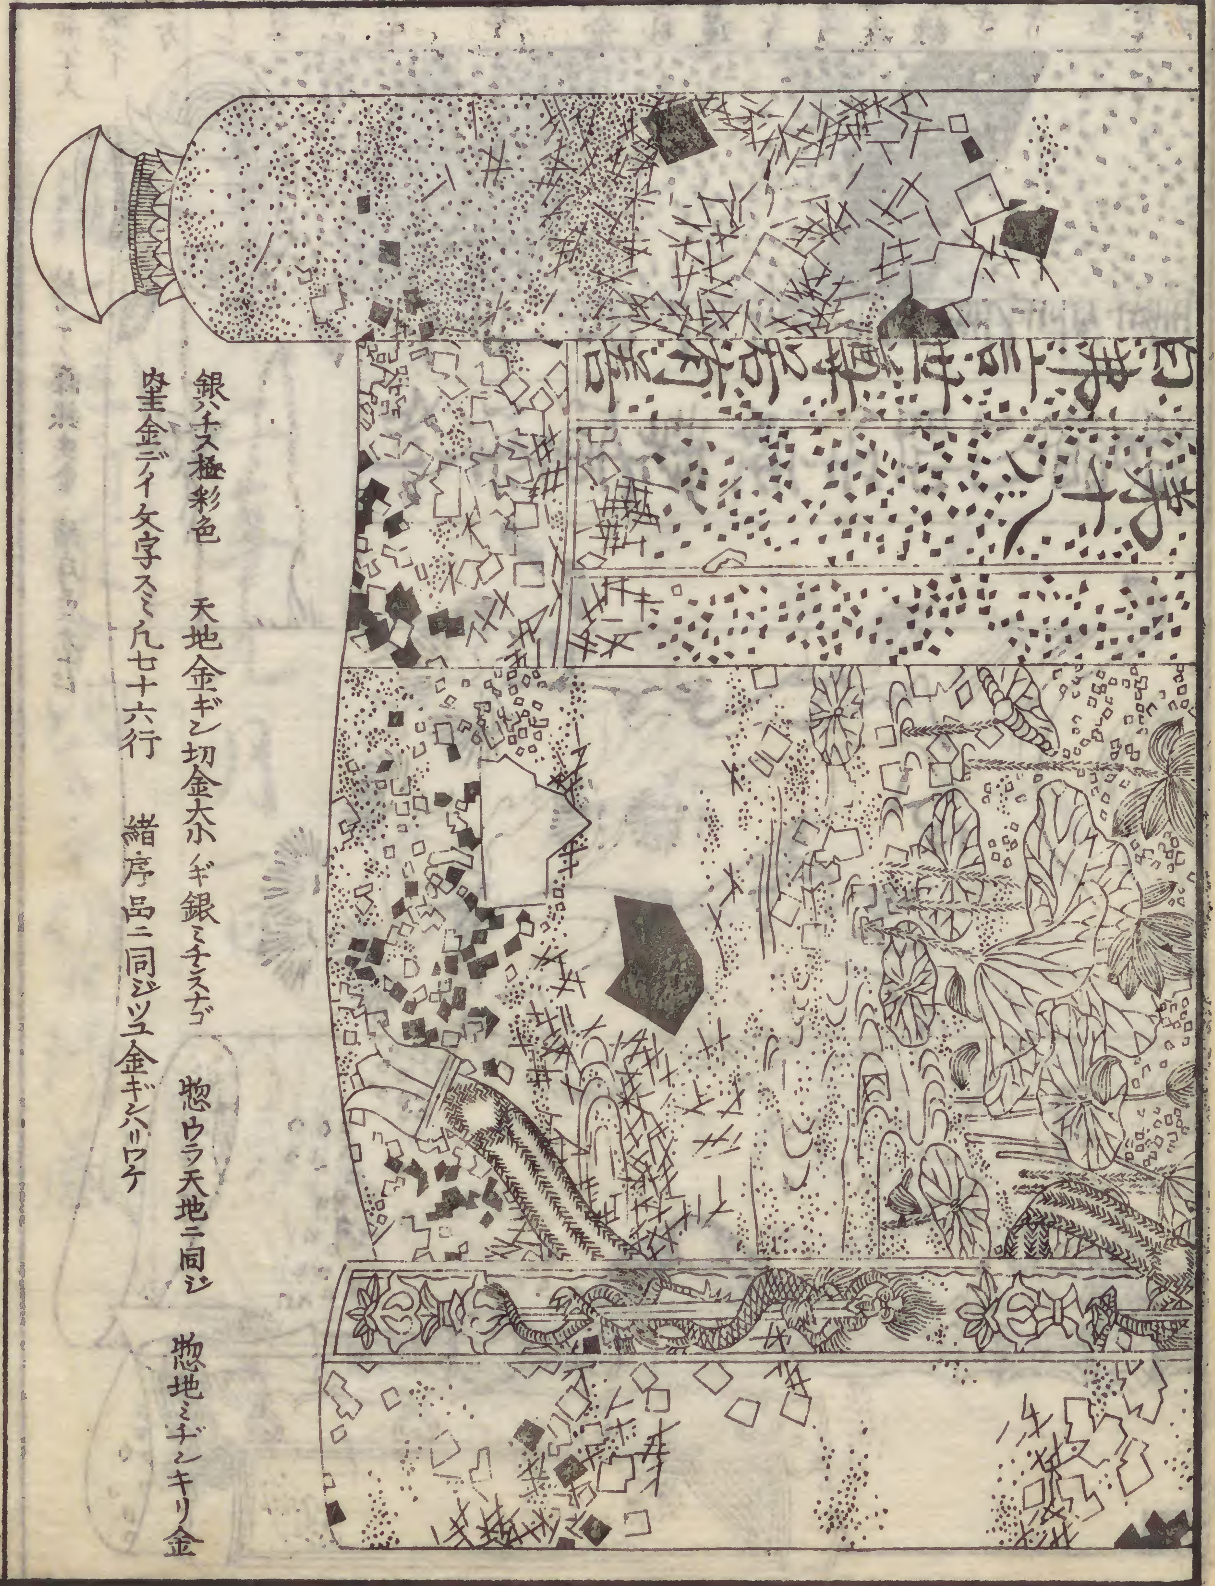 第十八
白佛言世尊若有善
銀ハチス極彩色 天地金ギン切金大小ギ銀ミチンスナゴ 惣ウラ天地ニ同ジ 惣地ミヂンキリ金
金デイ文字スミ凡七十六行 緒序品ニ同ジツユ金ギンハリワケ